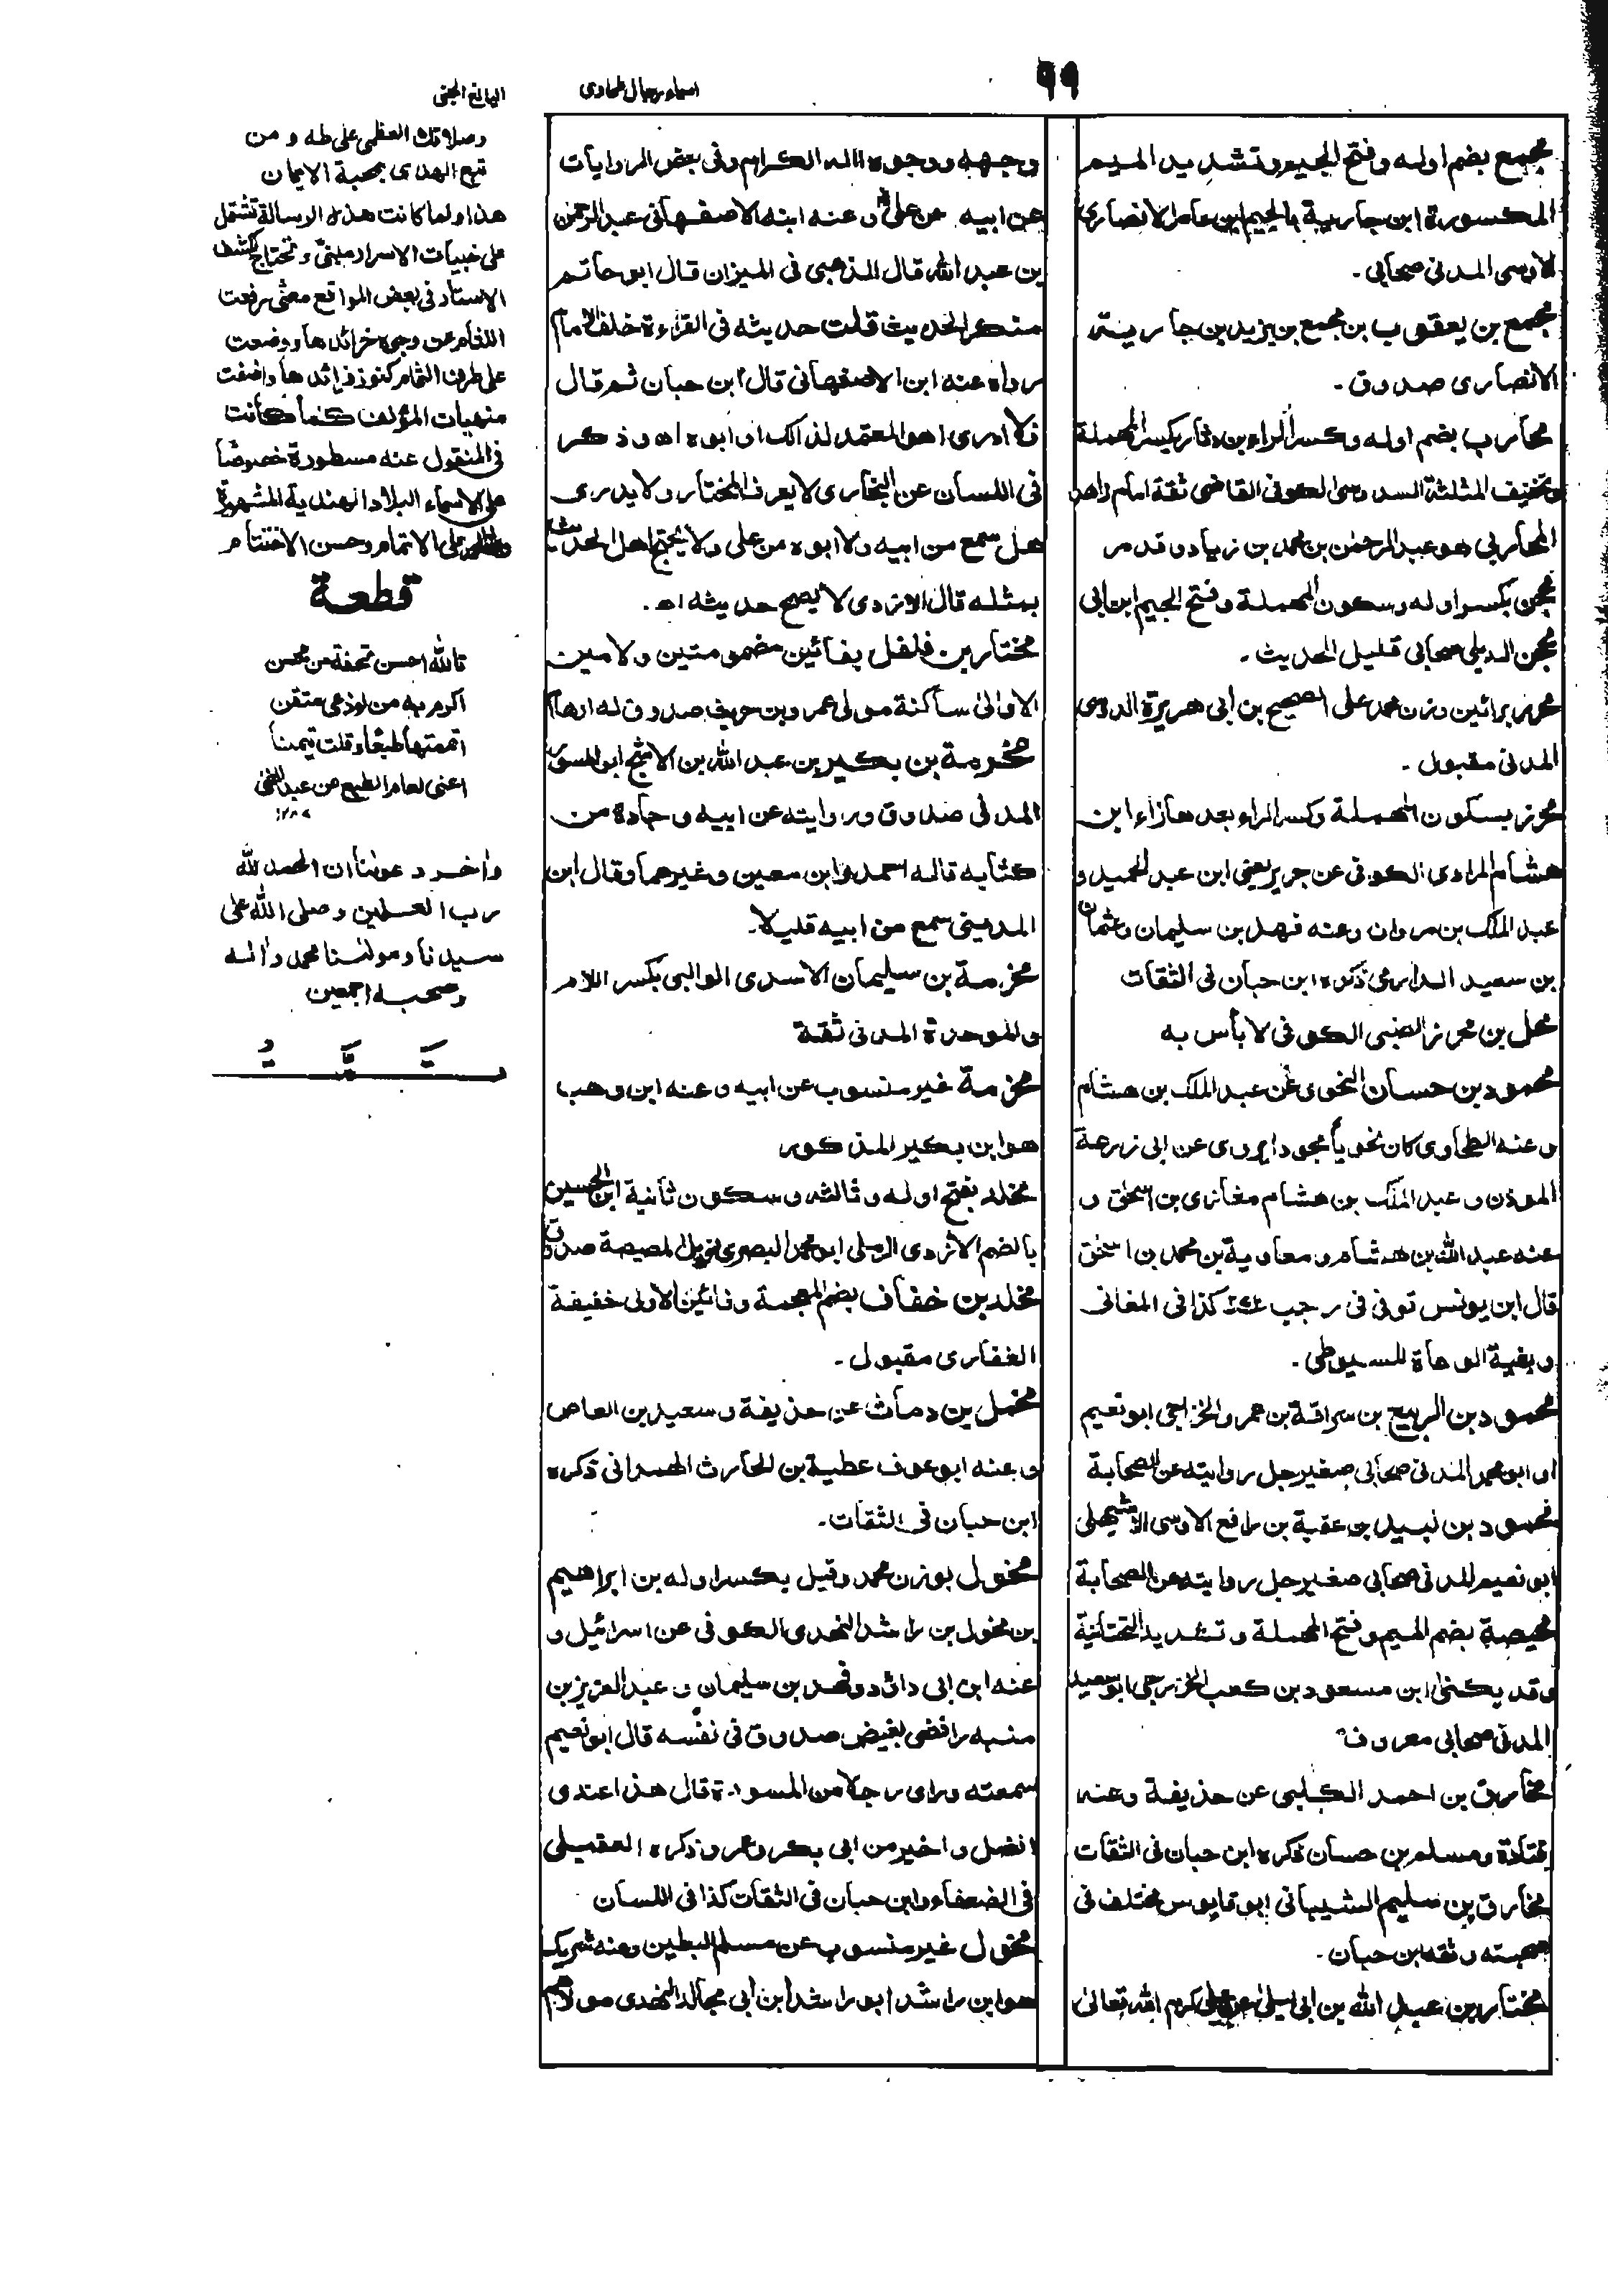 ٩٩
اسماء رجال طحاوى
اليانع الجنى
مجمع بضم اوله وفتح الجيم وتشديد الميم
المكسورة ابن جارية بالجيم ابن عامر الانصارى
الاوسى المدنى صحابى -
مجمع بن يعقوب بن مجمع بن يزيد بن جارية
الانصارى صدوق -
محارب بضم اوله وكسر الراء بن دثار بكسر المهملة
وتخفيف المثلثة السدوسى الكوفى القاضى ثقة امام زاهد
المحاربى هو عبد الرحمٰن بن محمد بن زياد وقد مر
محجن بكسر اوله وسكون المهملة وفتح الجيم ابن ابى
محجن الديلى صحابى قليل الحديث -
محرر برائين وزن محمد على الصحيح بن ابى هريرة الدوسى
المدنى مقبول -
محرز بسكون المهملة وكسر الراء بعدها زاء ابن
هشام المرادى الكوفى عن جرير يعنى ابن عبد الحميد و
عبد الملك بن مروان وعنه فهد بن سليمان وعثمان
بن سعيد الدارمى ذكره ابن حبان فى الثقات
محل بن محرز الضبى الكوفى لا بأس به
محمود بن حسان النحوى عن عبد الملك بن هشام
وعنه الطحاوى كان نحويا مجودا يروى عن ابى زرعة
الموذن وعبد الملك بن هشام مغازى بن اسحٰق و
عنه عبد الله بن هشام ومعاوية بن محمد بن اسحٰق
قال ابن يونس توفى فى رجب كذا فى المغانى
وبغية الوعاة للسيوطى -
محمود بن الربيع بن سراقة بن عمرو الخزرجى ابو نعيم
او ابو محمد المدنى صحابى صغير جل روايته عن الصحابة
محمود بن لبيد بن عقبة بن رافع الاوسى الاشهلى
ابو نعيم المدنى صحابى صغير جل روايته عن الصحابة
محيصة بضم الميم وفتح المهملة وتشديد التحتانية
وقد يكنى ابن مسعود بن كعب الخزرجى ابو سعيد
المدنى صحابى معروف
مخارق بن احمد الكلبى عن حذيفة وعنه
قتادة ومسلم بن حسان ذكره ابن حبان فى الثقات
مخارق بن سليم الشيبانى ابو قابوس مختلف فى
صحبته وثقه ابن حبان -
مختار بن عبد الله بن ابى ليلى عن على كرم الله تعالىٰ
وجهه ووجوه اٰله الكرام وفى بعض الروايات
عن ابيه عن على وعنه ابنه الاصفهانى عبد الرحمٰن
بن عبد الله قال الذهبى فى الميزان قال ابو حاتم
منكر الحديث قلت حديثه فى القراءة خلف الامام
رواه عنه ابن الاصفهانى قال ابن حبان ثم قال
فلا ادرى اهو المعتمد لذالك او ابوه اه وذكر
فى اللسان عن البخارى لا يعرف المختار ولا يدرى
هل سمع من ابيه ولا ابوه من على ولا يحتج اهل الحديث
بمثله قال الازدى لا يصح حديثه اه -
مختار بن فلفل بفائين مضمومتين ولامين
الاولىٰ ساكنة مولى عمرو بن حريث صدوق له اوهام
مخرمة بن بكير بن عبد الله بن الاشج ابو المسور
المدنى صدوق وروايته عن ابيه وجادة من
كتابه قاله احمد وابن معين وغيرهما وقال ابن
المدينى سمع من ابيه قليلا -
مخرمة بن سليمان الاسدى الوالبى بكسر اللام
والموحدة المدنى ثقة
مخرمة غير منسوب عن ابيه وعنه ابن وهب
هو ابن بكير المذكور
مخلد بفتح اوله وثالثه وسكون ثانية ابن الحسين
بالضم الازدى الرملى ابو محمد البصرى نزيل المصيصة صدوق
مخلد بن خفاف بضم المعجمة وفائين الاولى خفيفة
الغفارى مقبول -
مخمل بن دماث عن حذيفة وسعيد بن العاص
وعنه ابو عوف عطية بن الحارث الهمدانى ذكره
ابن حبان فى الثقات -
مخول بوزن محمد وقيل بكسر اوله بن ابراهيم
بن مخول بن راشد النهدى الكوفى عن اسرائيل و
عنه ابن ابى دائود وفهد بن سليمان و عبد العزيز بن
منبه رافضى بغيض صدوق فى نفسه قال ابو نعيم
سمعته وراى رجلا من المسودة قال هذا عندى
افضل واخير من ابى بكر وعمر وذكره العقيلى
فى الضعفاء وابن حبان فى الثقات كذا فى اللسان
مخول غير منسوب عن مسلم البطين وعنه شريك
هو ابن راشد ابو راشد ابن ابى مجالد النهدى مولاهم
وصلاتك العظمى على طه و من
تبع الهدى بمحبة الايمان
هذا ولما كانت هذه الرسالة تشتمل
على خبيات الاسرار وتحتاج كشف
الاستار فى بعض المواقع رفعت
اللثام عن وجوه خرائدها ووضعت
على طرف الثمام كنوز فرائدها واضفت
منهيات المؤلف كما كانت
فى المنقول عنه مسطورة خصوصًا
على الاسماء البلاد الهندية المشهورة
على الاتمام وحسن الاختتام
قطعة
تالله احسن تحفة من محسن
اكرم به من لوذعى متقن
اتممتها طبعًا وقلت تيمنًا
اعنى لعام الطبع من عبد الغنى
واٰخر دعوٰنا ان الحمد لله
رب العٰلمين وصلى الله على
سيدنا ومولٰنا محمد واٰله
وصحبه اجمعين